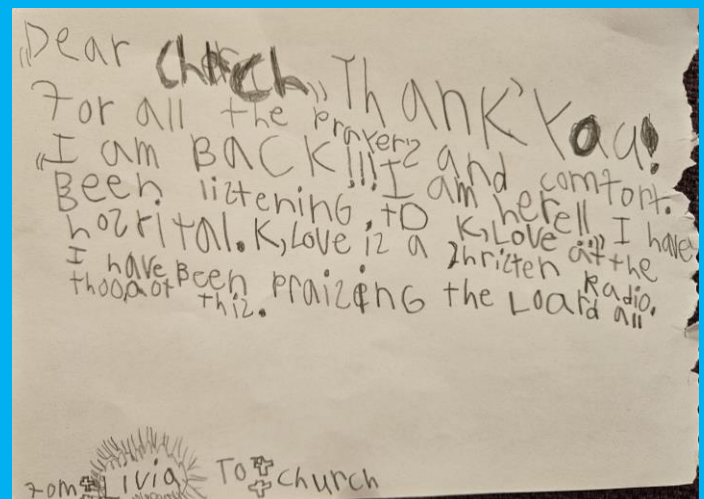 "Dear church" Thank You!
For all the prayers and comfort.
"I am BACK!!! I am here!!" I have
Been listening to K,Love at the
hospital. K,Love iz a Chrizten Radio.
I have Been praizing the Loard all
thoo,aot thiz.
From Livia To church